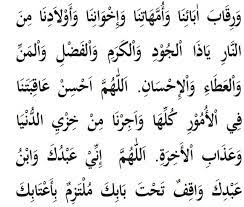 وَرِقَابَ اٰبَائِنَا وَاُمَّهَاتِنَا وَاِخْوَانِنَا وَاَوْلَادِنَا مِنَ
النَّارِ يَاذَا الْجُوْدِ وَالْكَرَمِ وَالْفَضْلِ وَالْمَنِّ
وَالْعَطَاءِ وَالْاِحْسَانِ. اَللّٰهُمَّ اَحْسِنْ عَاقِبَتَنَا
فِي الْاُمُوْرِ كُلِّهَا وَاَجِرْنَا مِنْ خِزْيِ الدُّنْيَا
وَعَذَابِ الْاٰخِرَةِ. اَللّٰهُمَّ اِنِّيْ عَبْدُكَ وَابْنُ
عَبْدِكَ وَاقِفٌ تَحْتَ بَابِكَ مُلْتَزِمٌ بِاَعْتَابِكَ